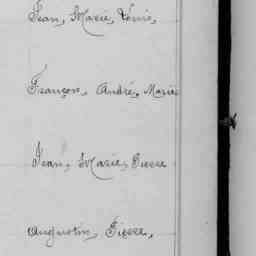 Jean, Marie, Louis,
François, André, Marie
Jean, Marie, Pierre
Augustin, Pierre,